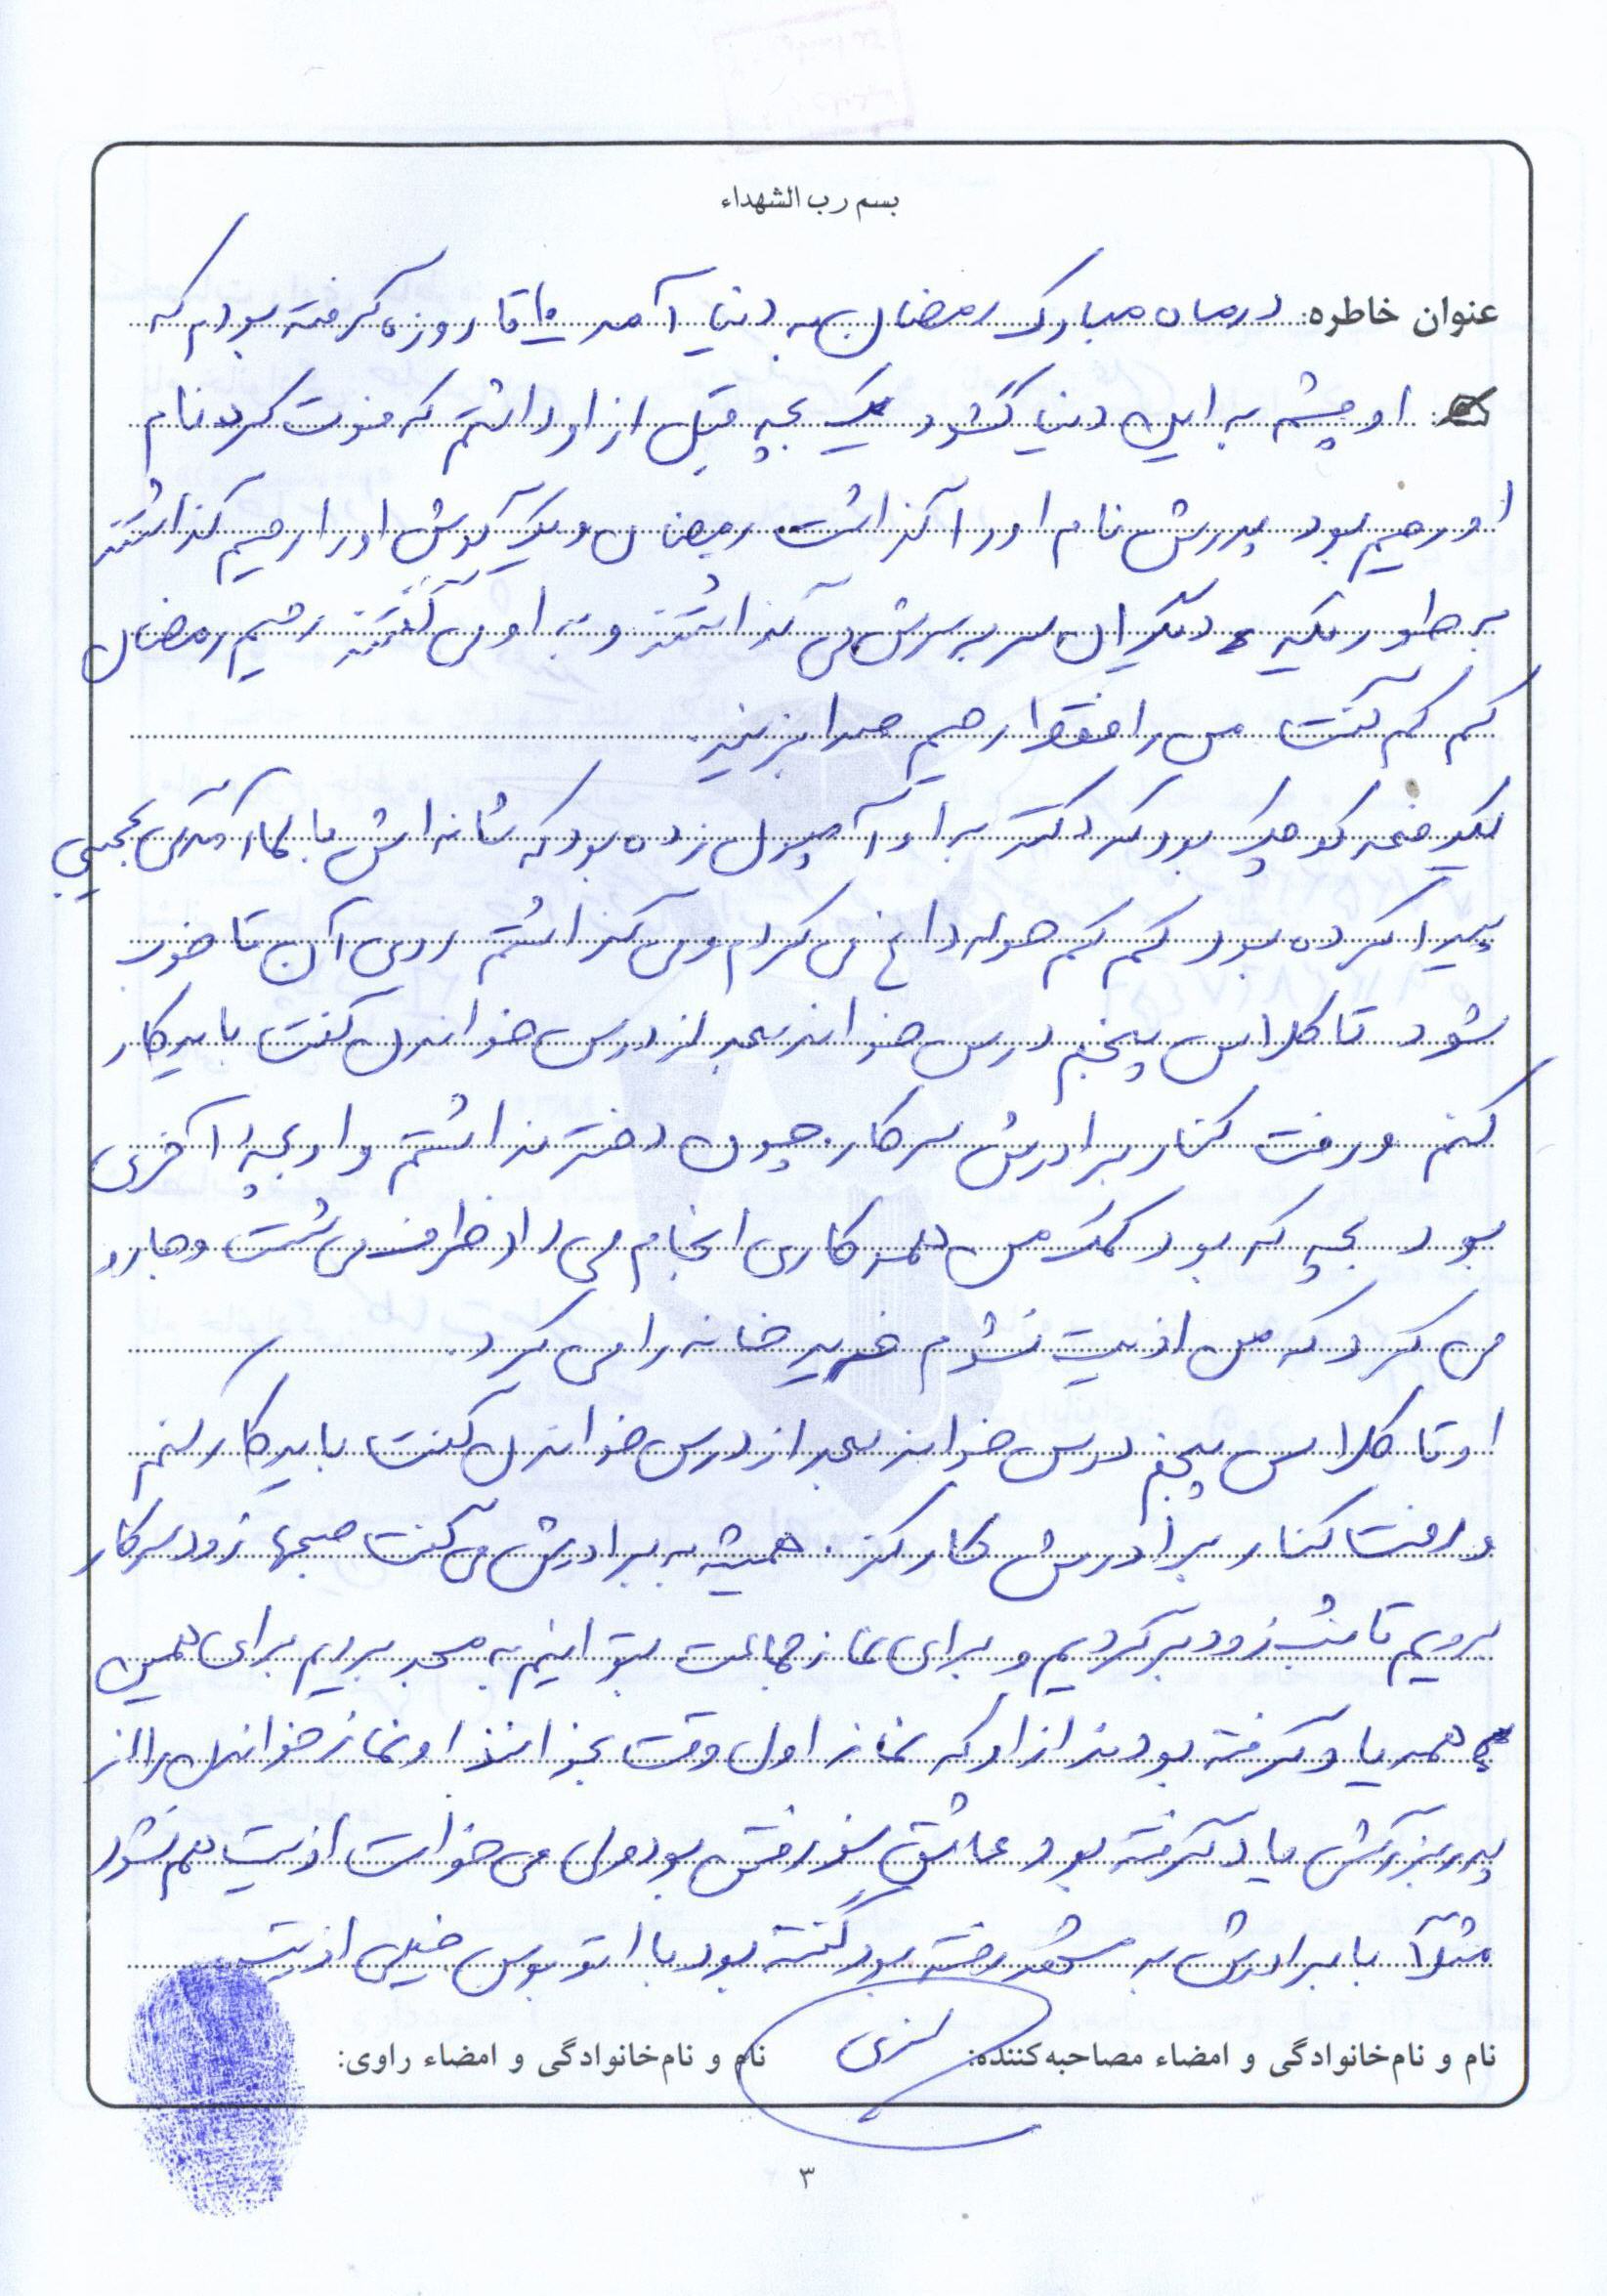 بسم رب الشهداء
عنوان خاطره: در ماه مبارک رمضان به دنیا آمد ۱۰ تا روزه گرفته بودم که
او چشم به این دنیا گشود یک بچه قبل از او داشتم که فوت کرد نام
او رحیم بود پدرش نام او را گذاشت رمضان و یک گوش او را رحیم گذاشتند
به طوریکه دیگران سر به سرش می گذاشتند و به او می گفتند رحیم رمضان
کم کم گفت من را فقط رحیم صدا بزنید.
یکدفعه کوچک بود که دکتر به او آمپول زده بود که شانه اش با بالا آمدگی عجیبی
پیدا کرده بود کم کم حوله داغ می کردم و می گذاشتم روی آن تا خوب
شود تا کلاس پنجم درس خواند بعد از درس خواندن گفت باید کار
کنم و رفت کنار برادرش سر کار. چون دختر نداشتم و او بچه آخری
بود بچه که بود کمک من همه کاری انجام می داد ظرف می شست و جارو
می کرد که من اذیت نشوم خرید خانه را می کرد.
او تا کلاس پنجم درس خواند بعد از درس خواندن گفت باید کار کنم
و رفت کنار برادرش کار کند. همیشه به برادرش می گفت صبحها زود سر کار
برویم تا شب زود برگردیم و برای نماز جماعت بتوانیم به مسجد برویم برای همین
همه یاد گرفته بودند از او که نماز اول وقت بخوانند او نماز خواندن را از
پدر بزرگش یاد گرفته بود عاشق سفر رفتن بود ولی می خواست اذیت هم نشود
مثلاً با برادرش به مشهد رفته بود گفته بود با اتوبوس خیلی اذیت
نام و نام‌خانوادگی و امضاء مصاحبه‌کننده: نام و نام‌خانوادگی و امضاء راوی:
۳